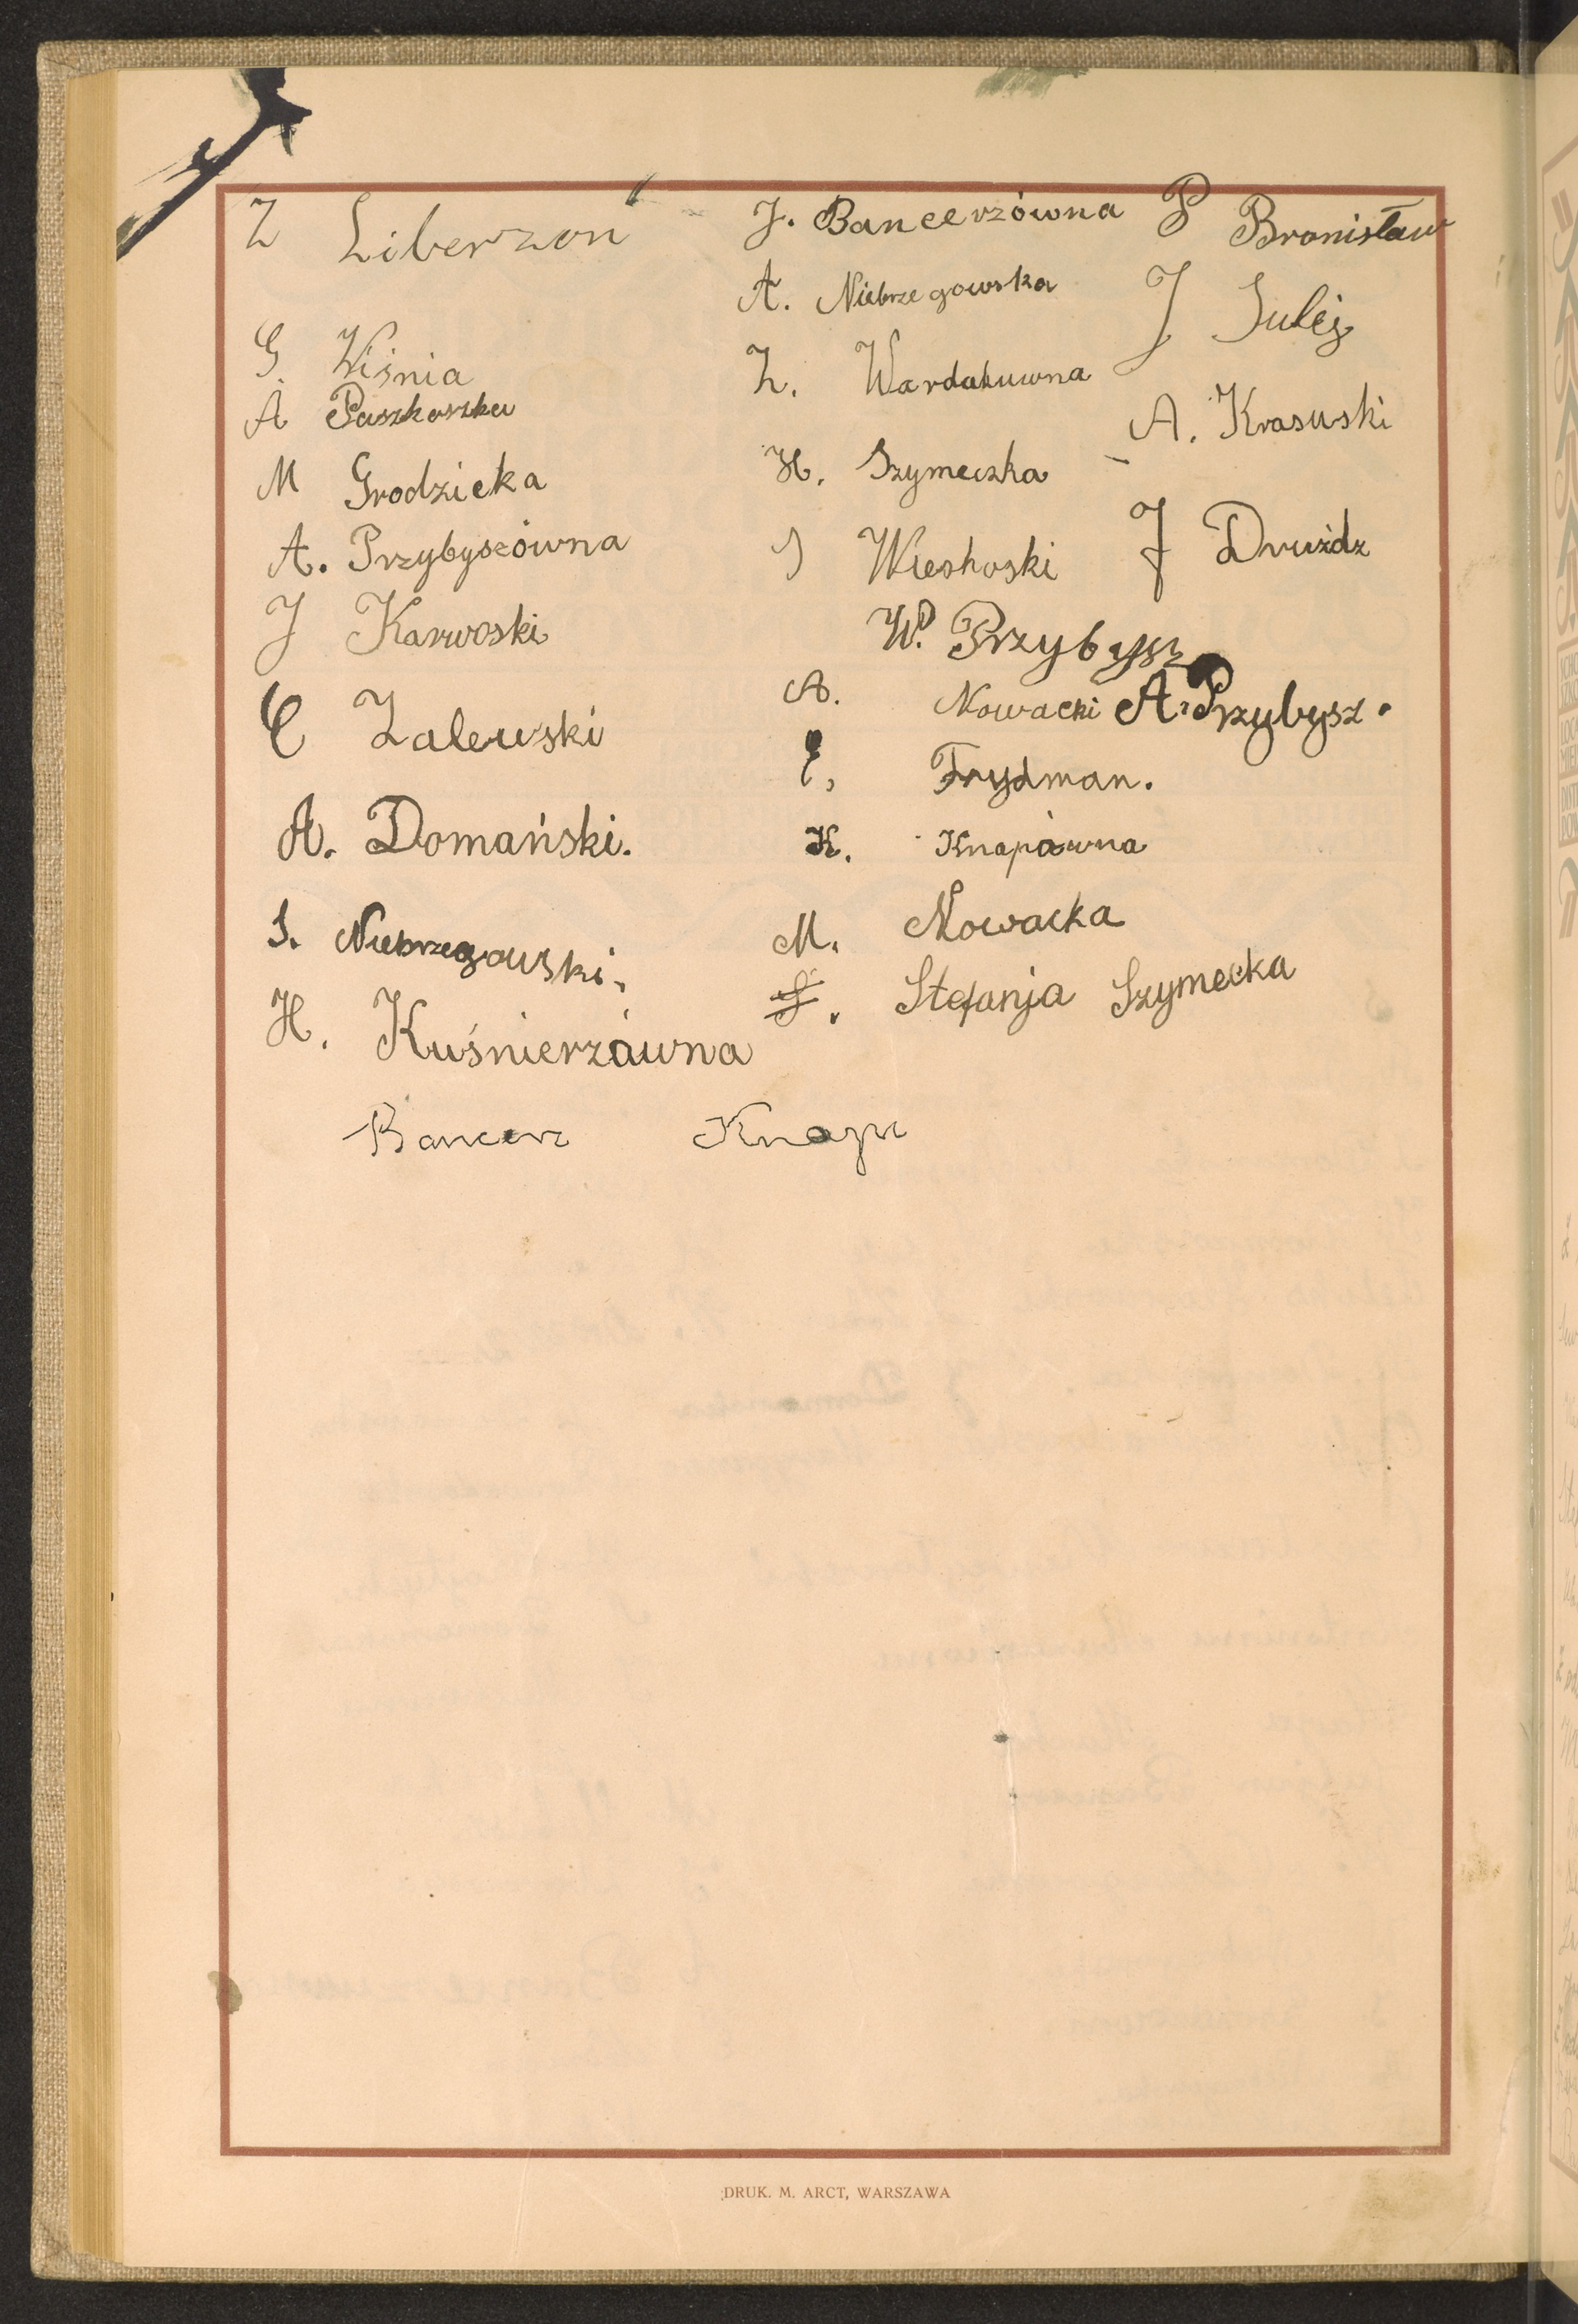 Z Liberzon
G. Wiśnia
A Paszkoszka
M Grodzicka
A. Przybyszówna
J Karwoski
C Zalewski
A. Domański.
S. Niebrzegowski.
H. Kuśnierzówna
Bancerz Knap
J. Bancerzówna
A. Niebrzegowska
Z. Wardakuwna
H. Szymeczka
J Wieskoski
W. Przybysz
A. Nowacki
Frydman.
K. Knapówna
M. Nowacka
S. Stefanja Szymecka
P Bronisław
J Sulej
A. Krasuski
J Drużdz
A. Przybysz.
DRUK. M. ARCT, WARSZAWA